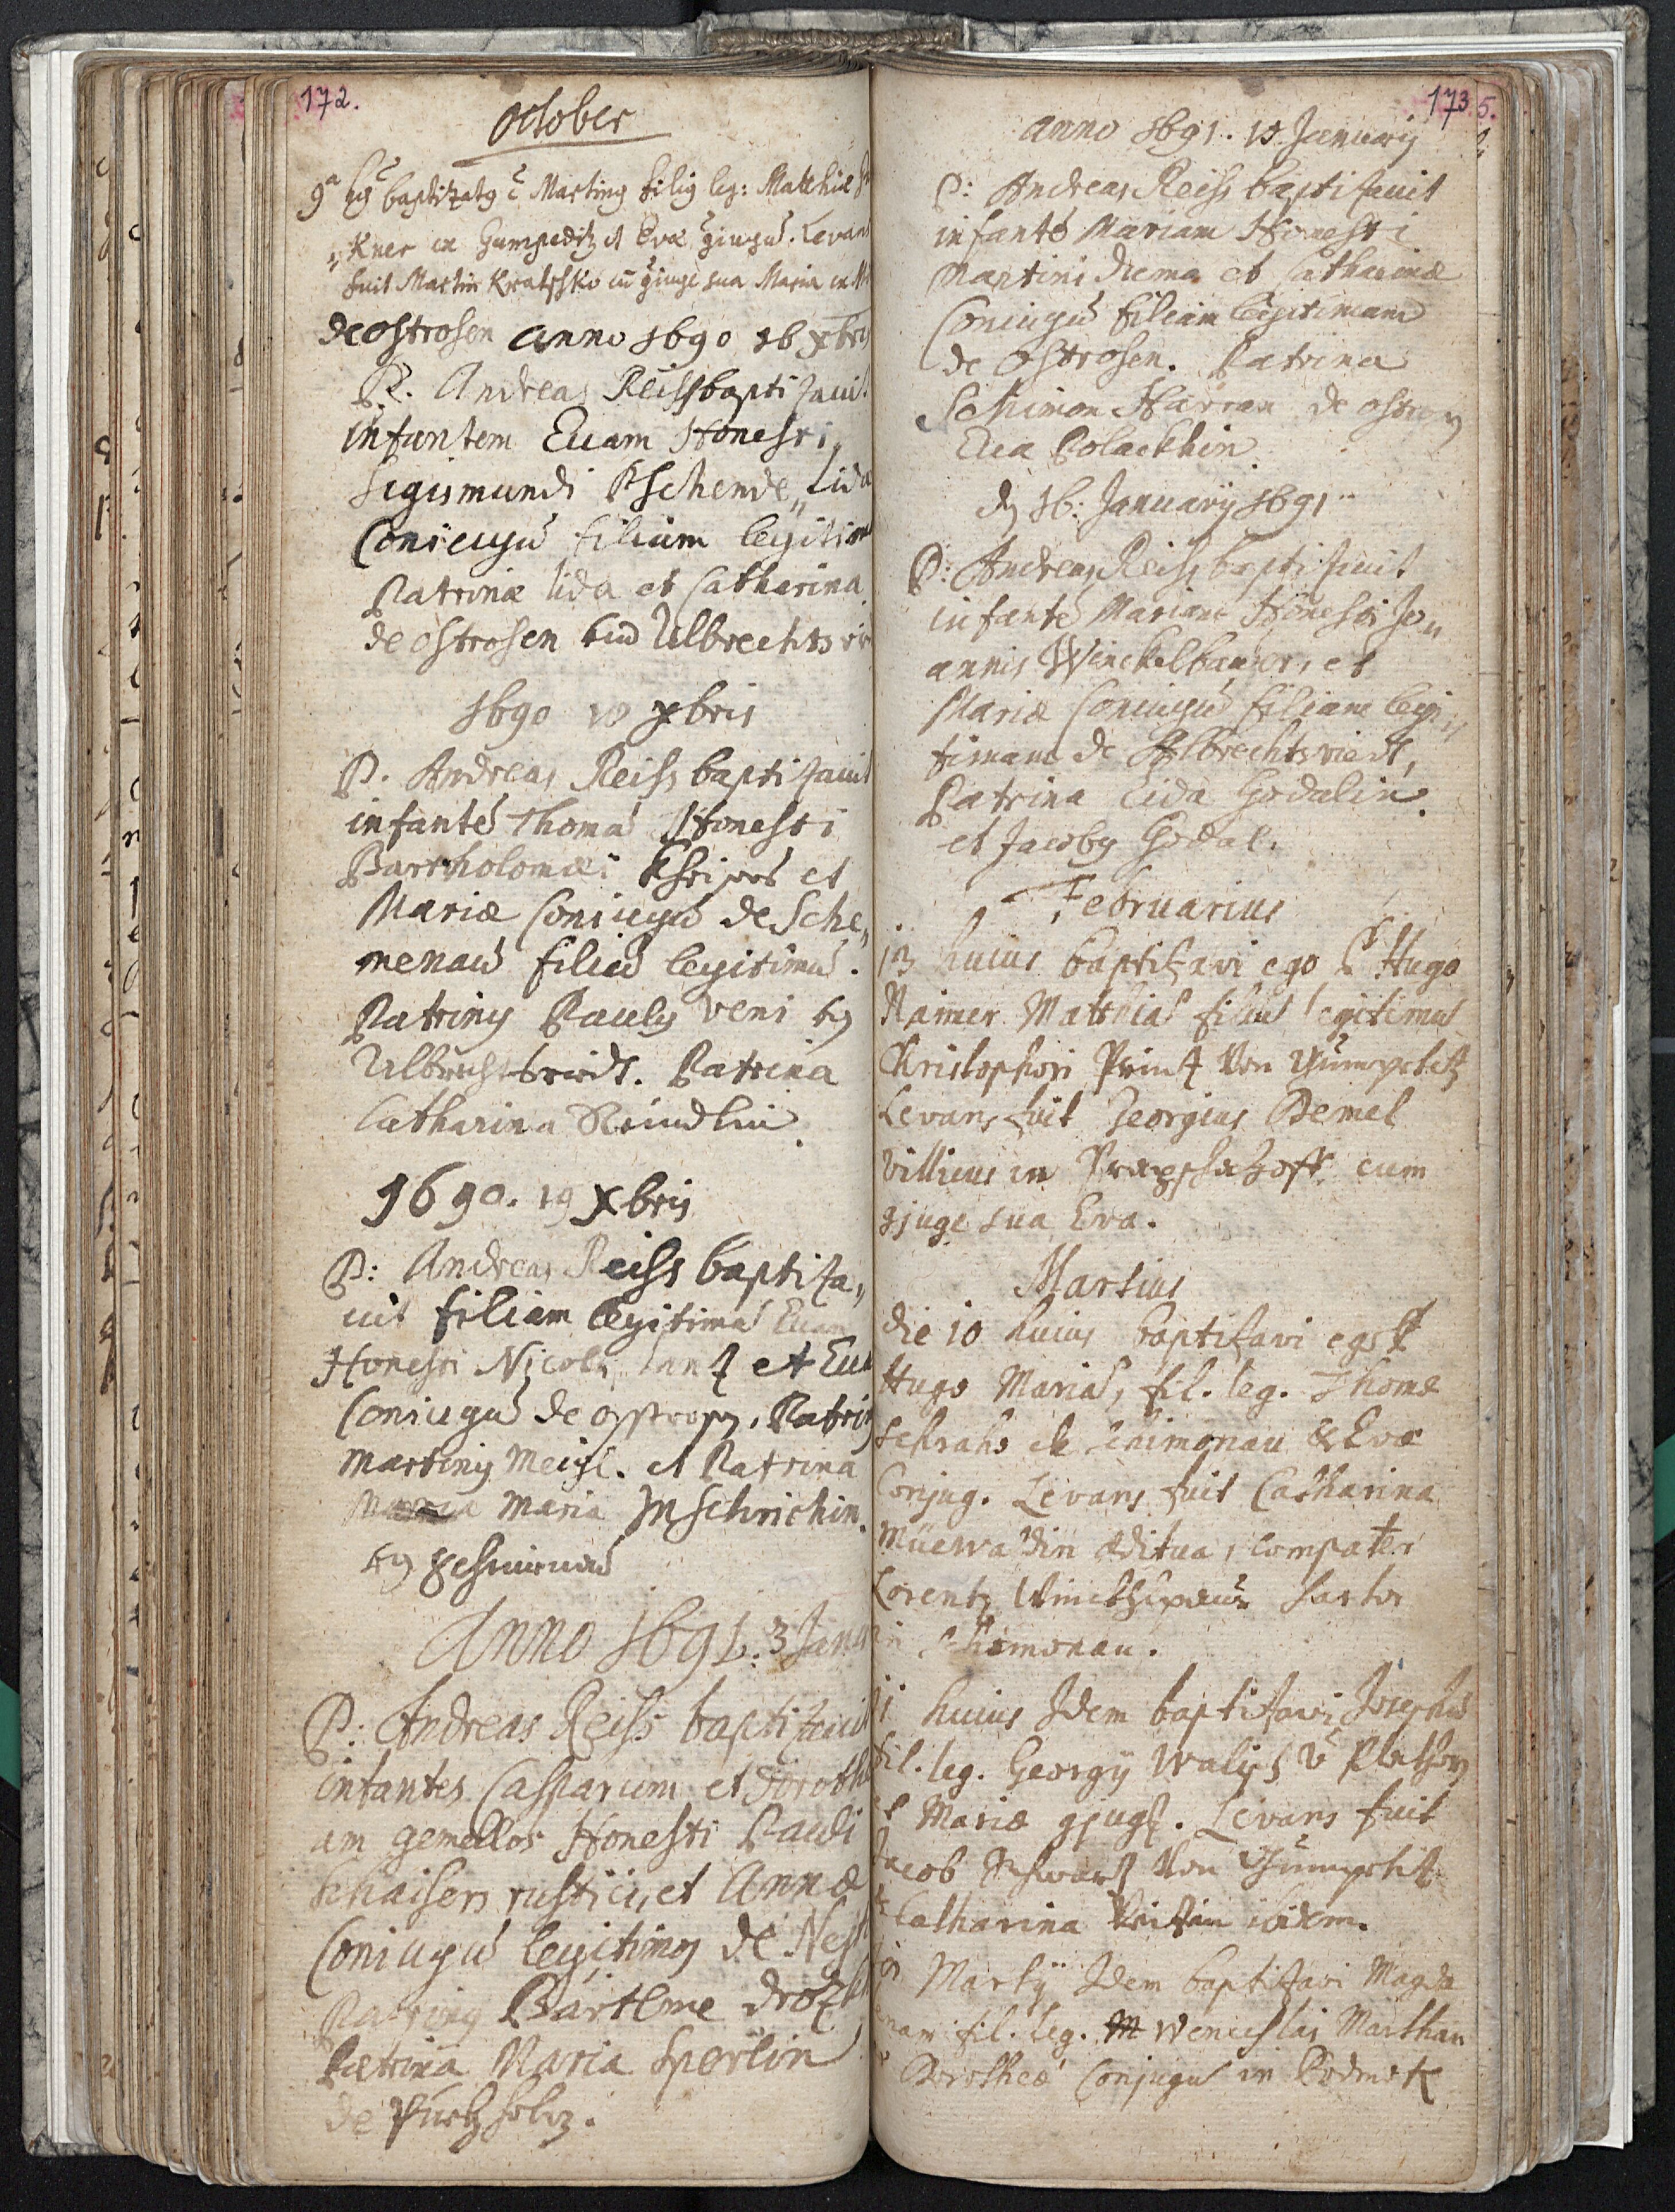 172.
October
9a hui9 baptizat9 ẽ Martin9 filiq leg: Matthiæ
Kner ex Gumpeditz et Evæ giugũ. Levans
fuit Martin Kratzhko cũ giuge sua Maria ex
de ostrosen anno 1690 16 xbris
P. Andreas Reiss baptizauit
infantem Euam Honesti
Sigismundi Pschende,, Lidæ
Coniugũ filiam legitimã
Patrinæ Lida et Catharina
de ostrosen et Ulbrechts
1690 10 xbris
P. Andreas Reiss baptizauit
infantẽ Thomã Honesti
Bartholomæi et
Mariæ Coniugũ de Sche,,
menaw filiũ legitimũ.
Patrin9 Paul9 veni ex
Ulbrechtsriedt. Patrina
Catharina Reindlin
1690. 19 xbris
P: Andreas Reiss baptiza,,
uit filiam legitimã Euam
Honesti Nicolai Lantz et Euæ
Coniugũ de ostrosen. Patrin9
Martin9 Meisl. et Patrina
Maria
Anno 1691. 3 Janu
P: Andreas Reiss baptizauit
infantes Casparum et Dorothe
am gemellos Honesti Pauli
Khaisers rustici, et Annæ
Coniugũ legitimos de
Patrin9 Bartlme
Patrina Maria Sperlin
de
173.
5.
anno 1691. 10 Januarij
P: Andreas Reiss baptizauit
infantẽ Mariam Honesti
Martini Drema et Catharinæ
Coniugũ filiam legitimam
de Ostrosen. Patrina
Schimon Harran de ostrosen
Eua Polackhin
dy 16: Januarij 1691
P: Andreas Reiss baptizauit
infantẽ Mariam Honesti Jo,,
annis Winckelbauer, et
Mariæ Coniugũ filiam legi,,
timam de Albrechtsriedt,
Patrina Lida Godalin
et Jacob9 Godal.
Februarius
13 huius baptizavi ego P Hugo
Rainer Matthiã filiũ legitimũ
Christophori Printz von Gumpetitz
Levans fuit Georgius Demel
Villicus in cum
gjuge sua Eva.
Martius
die 10 huius baptizavi ego P
Hugo Mariã, fil. leg. Thomæ
Schrahs de Schimonau & Evæ
Conjug. Levans fuit Catharina
Müewaldin æditua, Compater
Lorentz Sartor
in Schimonau.
huius Idem baptizavi Josephũ
fil. leg. Georgij Walijs
et Mariæ gjugũ. Levans fuit
Jacob Schwartz von Gumpetitz
& Catharina ibidem.
Martij Idem baptizavi Magda
lenam fil. leg. Wenceslai Marthan
Dorotheæ Conjugũ in Podmokl